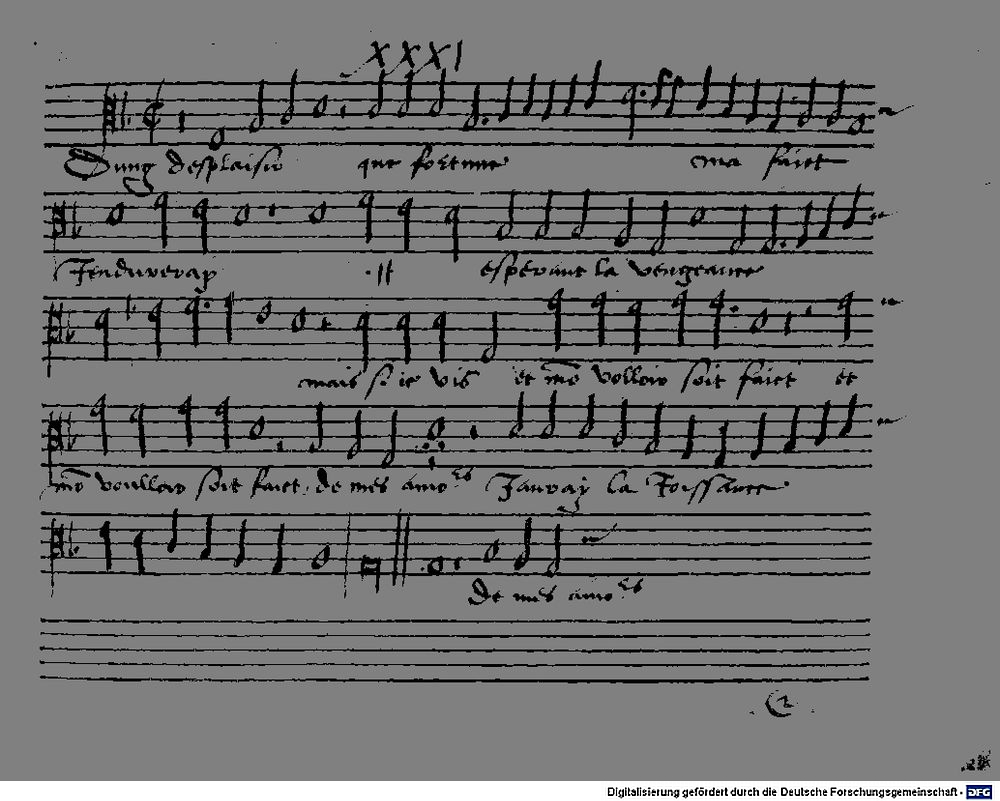 XXXI
Dung desplaisir que fortune ma faict
Jendureray .//. esperant la vengeance
mais si ie vis et mō volloir soit faict et
mō voulloir soit faict de mes amoes Jauray la Joissance
De mes amoes
Digitalisierung gefördert durch die Deutsche Forschungsgemeinschaft - DFG